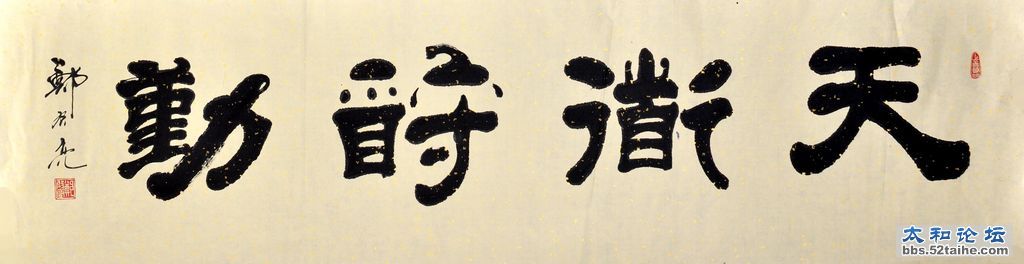 天衜酧勤
鄭 亮
太和论坛
bbs.52taihe.com